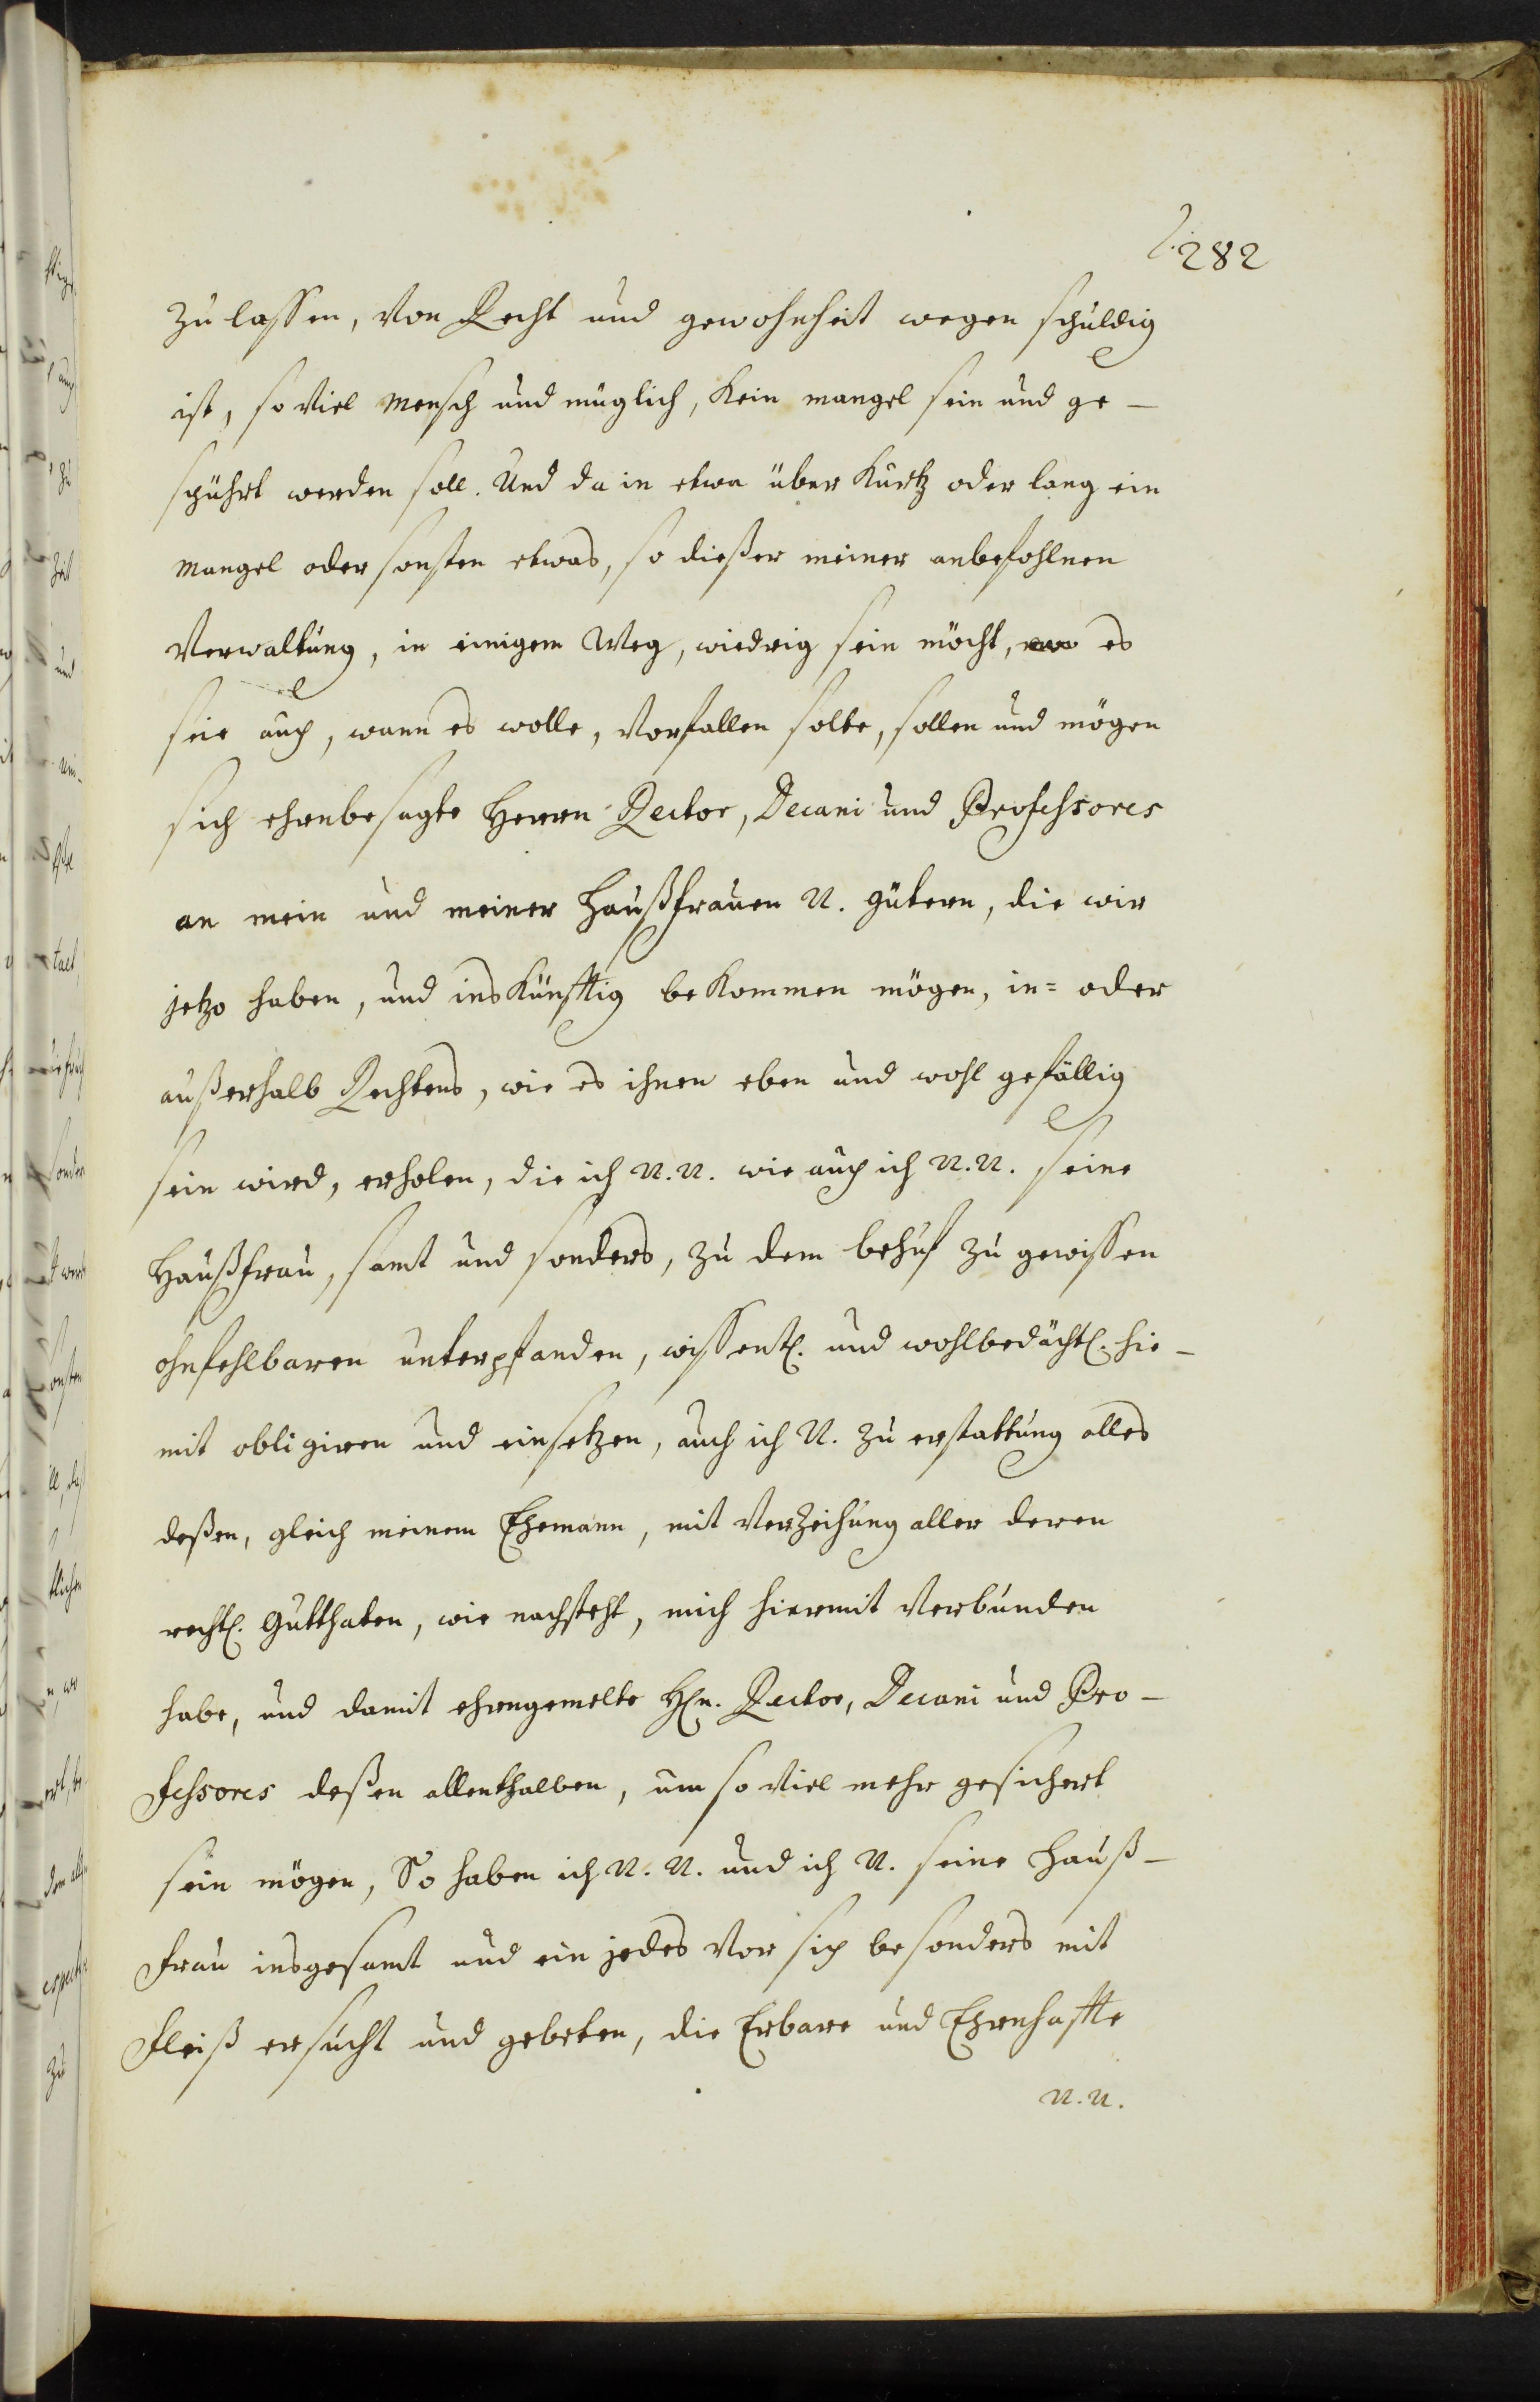 282
zu lassen, von Recht und gewohnheit wegen schuldig
ist, so viel mensch und müglich, kein mangel sein und ge-
spührt werden soll. Und da in etwa über kurtz oder lang ein
mangel oder sonsten etwas, so dießer meiner anbefohlnen
verwaltung, in einigem weg, wiedrig sein möcht, es
seie auch, wann es wolle, vorfallen solte, sollen und mögen
sich ehrenbesagte Herrn Rector, Decani und Professores
an mein und meiner Haußfrauen N. gütern, die wir
jetzo haben, und ins künfftig bekommen mögen, in= oder
außerhalb Rechtens, wie es ihnen eben und wohl gefällig
sein wird, erholen, die ich N. N. wie auch ich N. N. seine
Haußfrau, samt und sonders, zu dem behuf zu gewissen
ohnfehlbaren unterpfanden, wissentl. und wohlbedächtl. hie-
mit obligiren und einsetzen, auch ich N. zu erstattung alles
deßen, gleich meinem Ehemann, mit verzeihung aller deren
rechtl. gutthaten, wie nachsteht, mich hiermit verbunden
habe, und damit ehrengemelte Hln. Rector, Decani und Pro-
fessores deßen allenthalben, um so viel mehr gesichert
sein mögen, So haben ich N. N. und ich N. seine Hauß-
frau insgesamt und ein jedes vor sich besonders mit
Fleiß ersucht und gebeten, die Erbare und Ehrnhaffte
N. N.